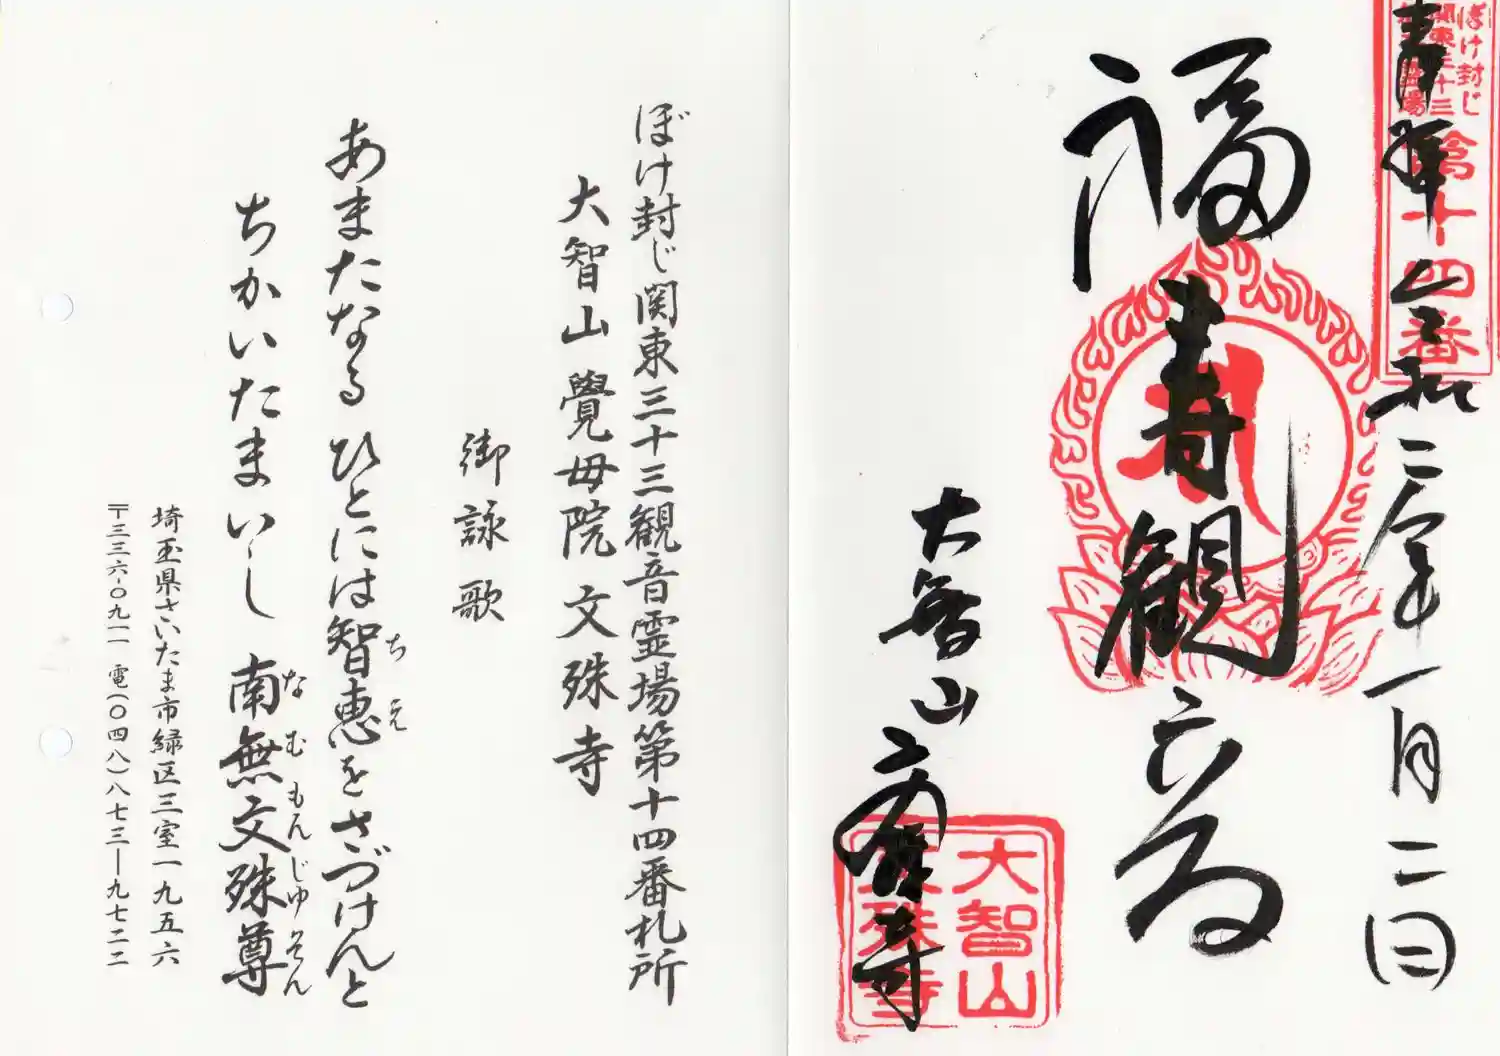 奉拝 令和二年一月二日
ぼけ封じ
関東三十三
第十四番
福寿観音
大智山 文殊寺
大智山
文殊寺
ぼけ封じ関東三十三観音霊場第十四番札所
大智山 覺母院 文殊寺
御詠歌
あまたなる ひとには智恵をさづけんと
ちえ
ちかいたまいし 南無文殊尊
なむもんじゅそん
埼玉県さいたま市緑区三室一九五六
〒三三六-〇九一一 電(〇四八)八七三―九七二二